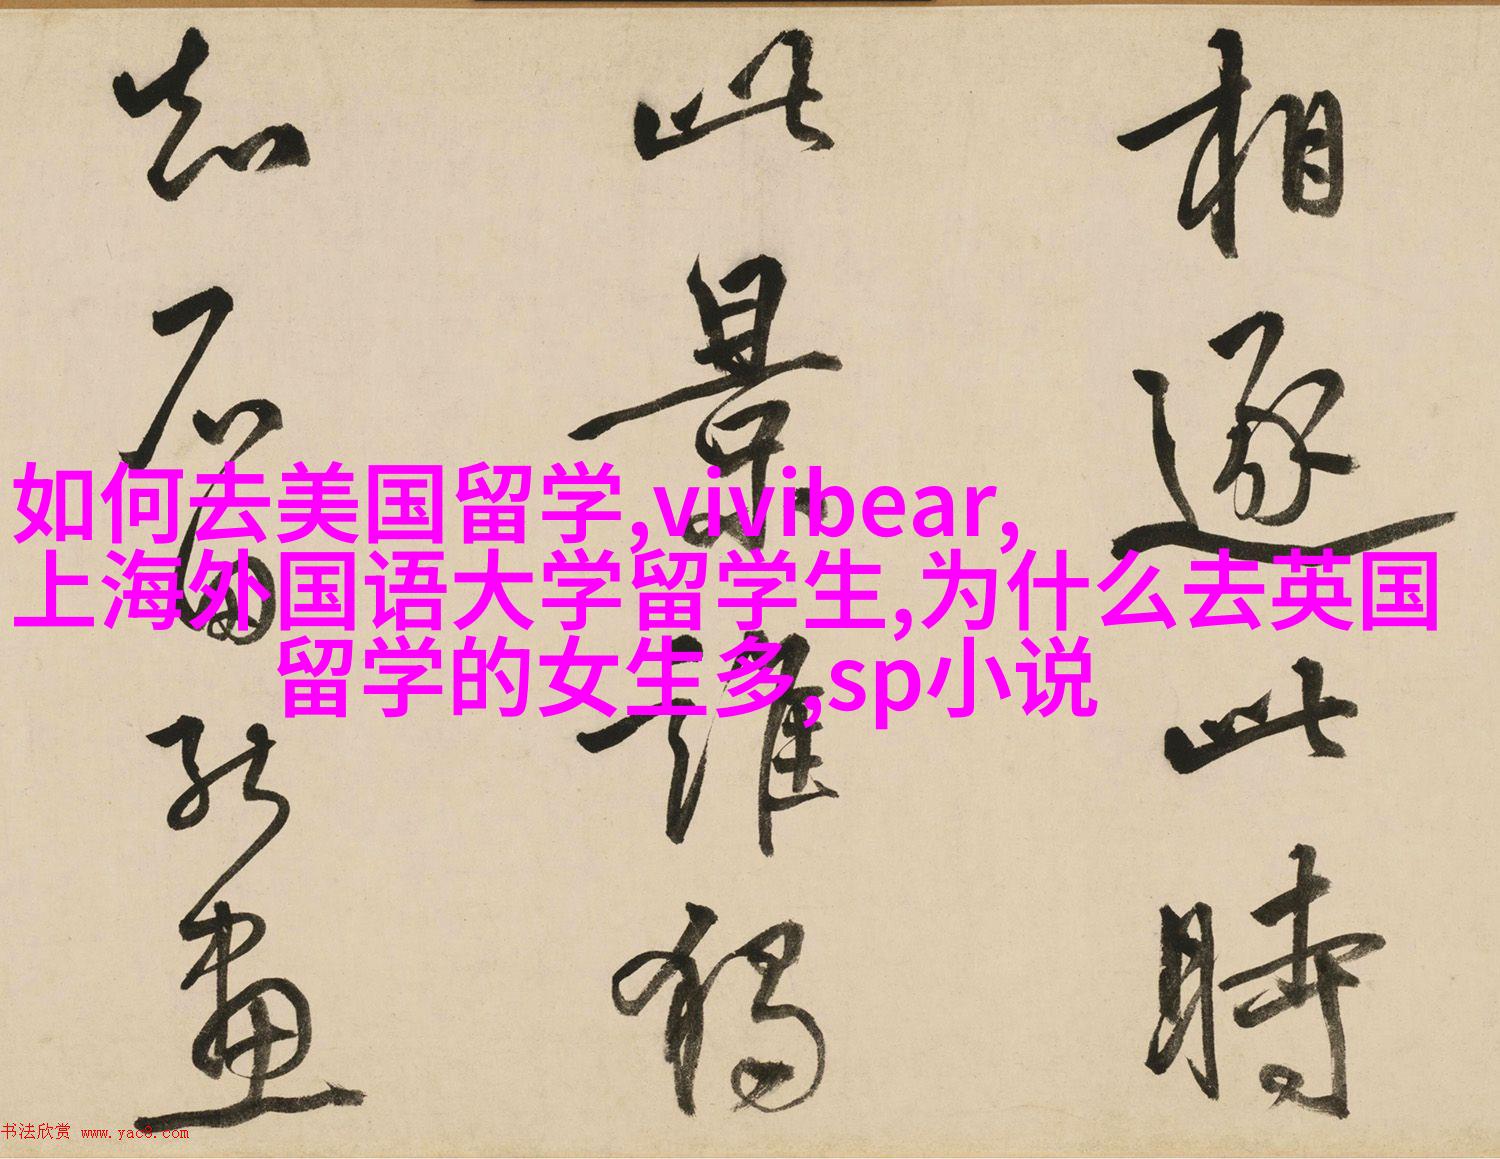 相逐此時
此景誰獨
知石屬能畫
如何去美国留学,vivibear,
上海外国语大学留学生,为什么去英国
留学的女生多,sp小说
书法欣赏 www.yac8.com